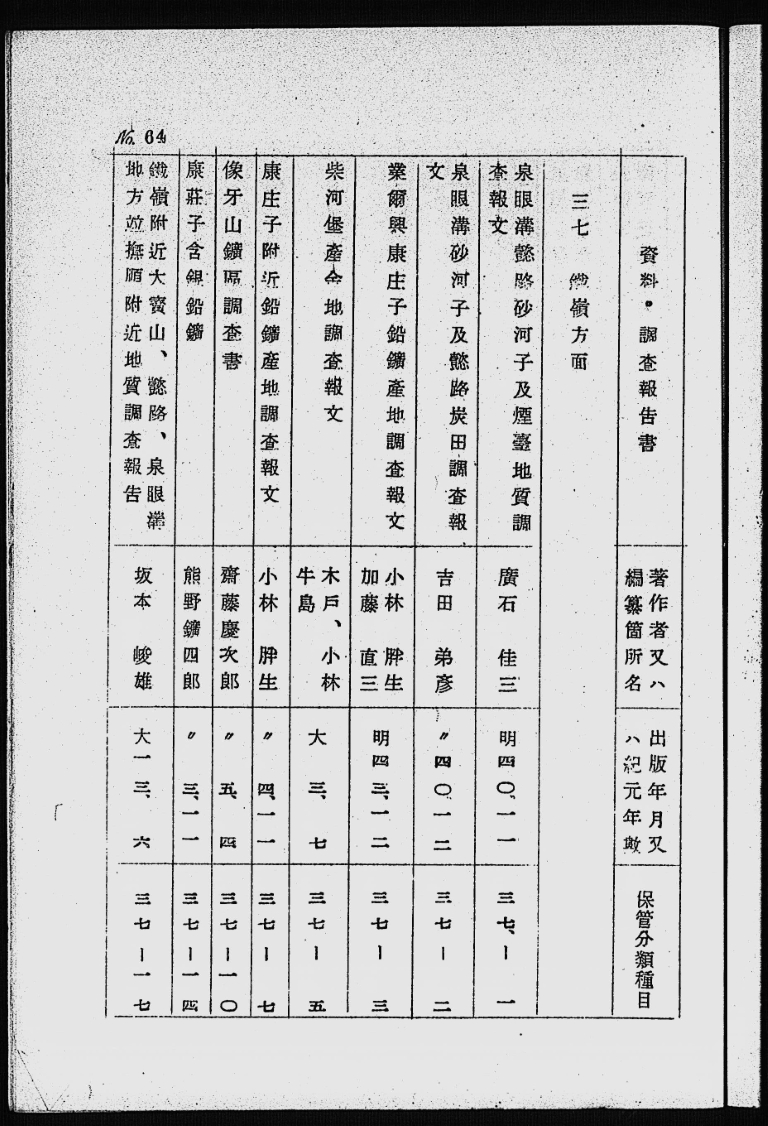 No. 64
資料・調査報告書
著作者又ハ
編纂箇所名
出版年月又
ハ紀元年数
保管分類種目
三七 鐵嶺方面
泉眼溝懿路砂河子及煙臺地質調
査報文
廣石 佳三
明四〇、一一
三七、ー 一
泉眼溝砂河子及懿路炭田調査報
文
吉田 弟彦
〃四〇、一二
三七ー 二
業爾興康庄子鉛鑛產地調査報文
小林 胖生
加藤 直三
明四三、一二
三七ー 三
柴河堡產金地調査報文
木戸、小林
牛島
大 三、七
三七ー 五
康庄子附近鉛鑛產地調査報文
小林 胖生
〃 四、一一
三七ー 七
像牙山鑛區調査書
齋藤慶次郎
〃 五、四
三七ー一〇
康莊子含銀鉛鑛
熊野鑛四郎
〃 三、一一
三七ー一四
鐵嶺附近大寳山、懿路、泉眼溝
地方並撫順附近地質調査報告
坂本 峻雄
大一三、六
三七ー一七